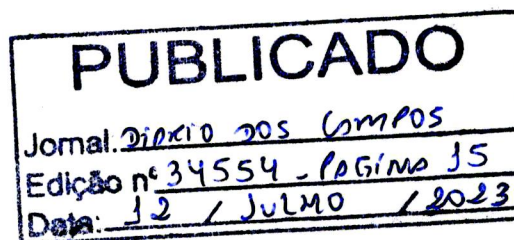 PUBLICADO
Jornal: DIÁRIO DOS CAMPOS
Edição nº 34554 - PAGINA 15
Data: 12 / JULHO / 2023